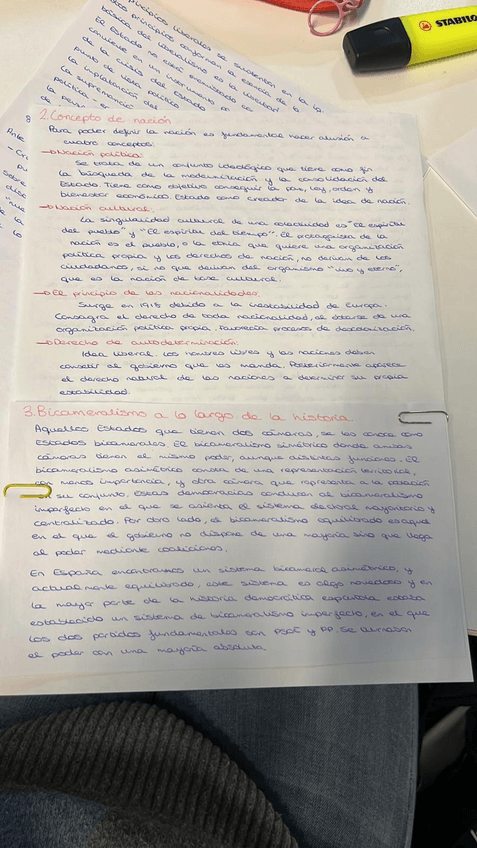 STABILO
principios liberales se sustentan en la
principios conforman la esencia de la
básica del liberalismo es la libertad
El Estado no será
de la crisis del Estado
punto de vista político
convierte en un instrumento
la implantación
la supremacía del
política
2. Concepto de nación
Para poder definir la nación es fundamental hacer alusión a
cuatro conceptos:
→ Nación política:
Se trata de un conjunto ideológico que tiene como fin
la búsqueda de la modernización y la consolidación del
Estado. Tiene como objetivo conseguir la paz, ley, orden y
bienestar económico. Estado como creador de la idea de nación.
→ Nación cultural:
La singularidad cultural de una colectividad es "El espíritu
del pueblo" y "El espíritu del tiempo". El protagonista de la
nación es el pueblo, o la etnia que quiere una organización
política propia y los derechos de nación, no derivan de los
ciudadanos, si no que derivan del organismo "vivo y eterno",
que es la nación de base cultural.
→ El principio de las nacionalidades:
Surge en 1918 debido a la inestabilidad de Europa.
Consagra el derecho de toda nacionalidad, al dotarse de una
organización política propia. Favorecía procesos de descolonización.
→ Derecho de autodeterminación:
Idea liberal. Los hombres libres y las naciones deben
consentir al gobierno que les manda. Posteriormente aparece
el derecho natural de las naciones a determinar su propia
estabilidad.
3. Bicameralismo a lo largo de la historia.
Aquellos Estados que tienen dos cámaras, se les conoce como
Estados bicamerales. El bicameralismo simétrico donde ambas
cámaras tienen el mismo poder, aunque distintas funciones. El
bicameralismo asimétrico consta de una representación territorial,
con menos importancia, y otra cámara que representa a la población
en su conjunto. Estas democracias conducen al bicameralismo
imperfecto en el que se asienta el sistema electoral mayoritario y
centralizado. Por otro lado, el bicameralismo equilibrado es aquel
en el que el gobierno no dispone de una mayoría sino que llega
al poder mediante coaliciones.
En España encontramos un sistema bicameral asimétrico, y
actualmente equilibrado, este sistema es algo novedoso y en
la mayor parte de la historia democrática española estaba
establecido un sistema de bicameralismo imperfecto, en el que
los dos partidos fundamentales son PSOE y PP. Se turnaban
el poder con una mayoría absoluta.